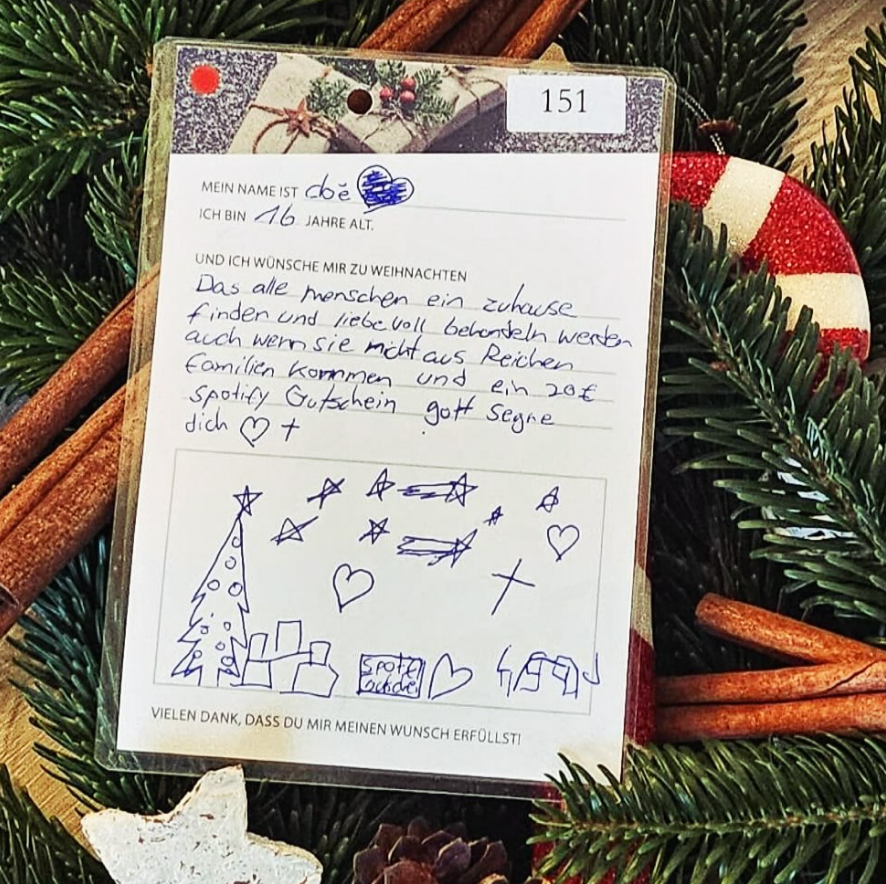 151
MEIN NAME IST cloë
ICH BIN 16 JAHRE ALT.
UND ICH WÜNSCHE MIR ZU WEIHNACHTEN
Das alle menschen ein zuhause
finden und liebe voll behandeln werden
auch wenn sie nicht aus Reichen
familien kommen und ein 20€
Spotify Gutschein gott segne
dich ♡ †
VIELEN DANK, DASS DU MIR MEINEN WUNSCH ERFÜLLST!